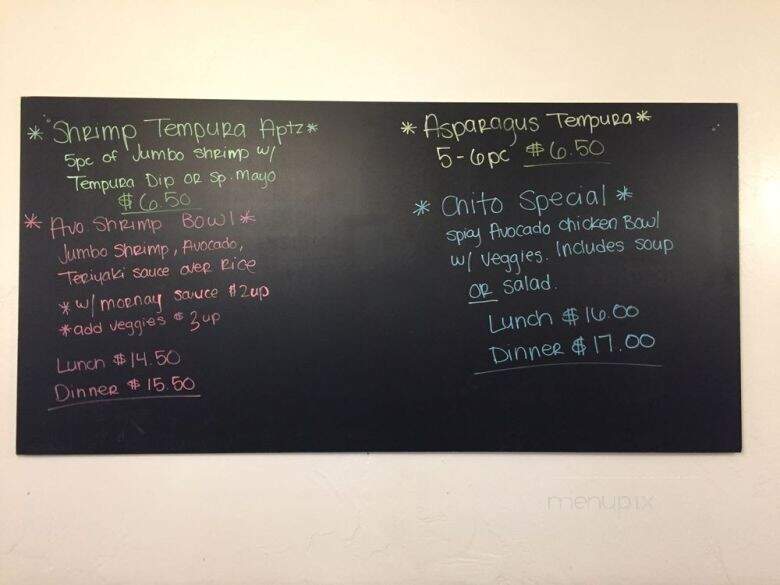 * Shrimp Tempura Aptz *
5pc of Jumbo shrimp w/
Tempura Dip or Sp. mayo
$6.50
* Avo. Shrimp Bowl *
Jumbo Shrimp, Avocado,
Teriyaki sauce over Rice
* w/ mornay sauce $2up
* add veggies $3up
Lunch $14.50
Dinner $15.50
* Asparagus Tempura *
5-6pc $6.50
* Chito Special *
spicy Avocado chicken Bowl
w/ veggies. Includes soup
OR salad.
Lunch $16.00
Dinner $17.00
menupix